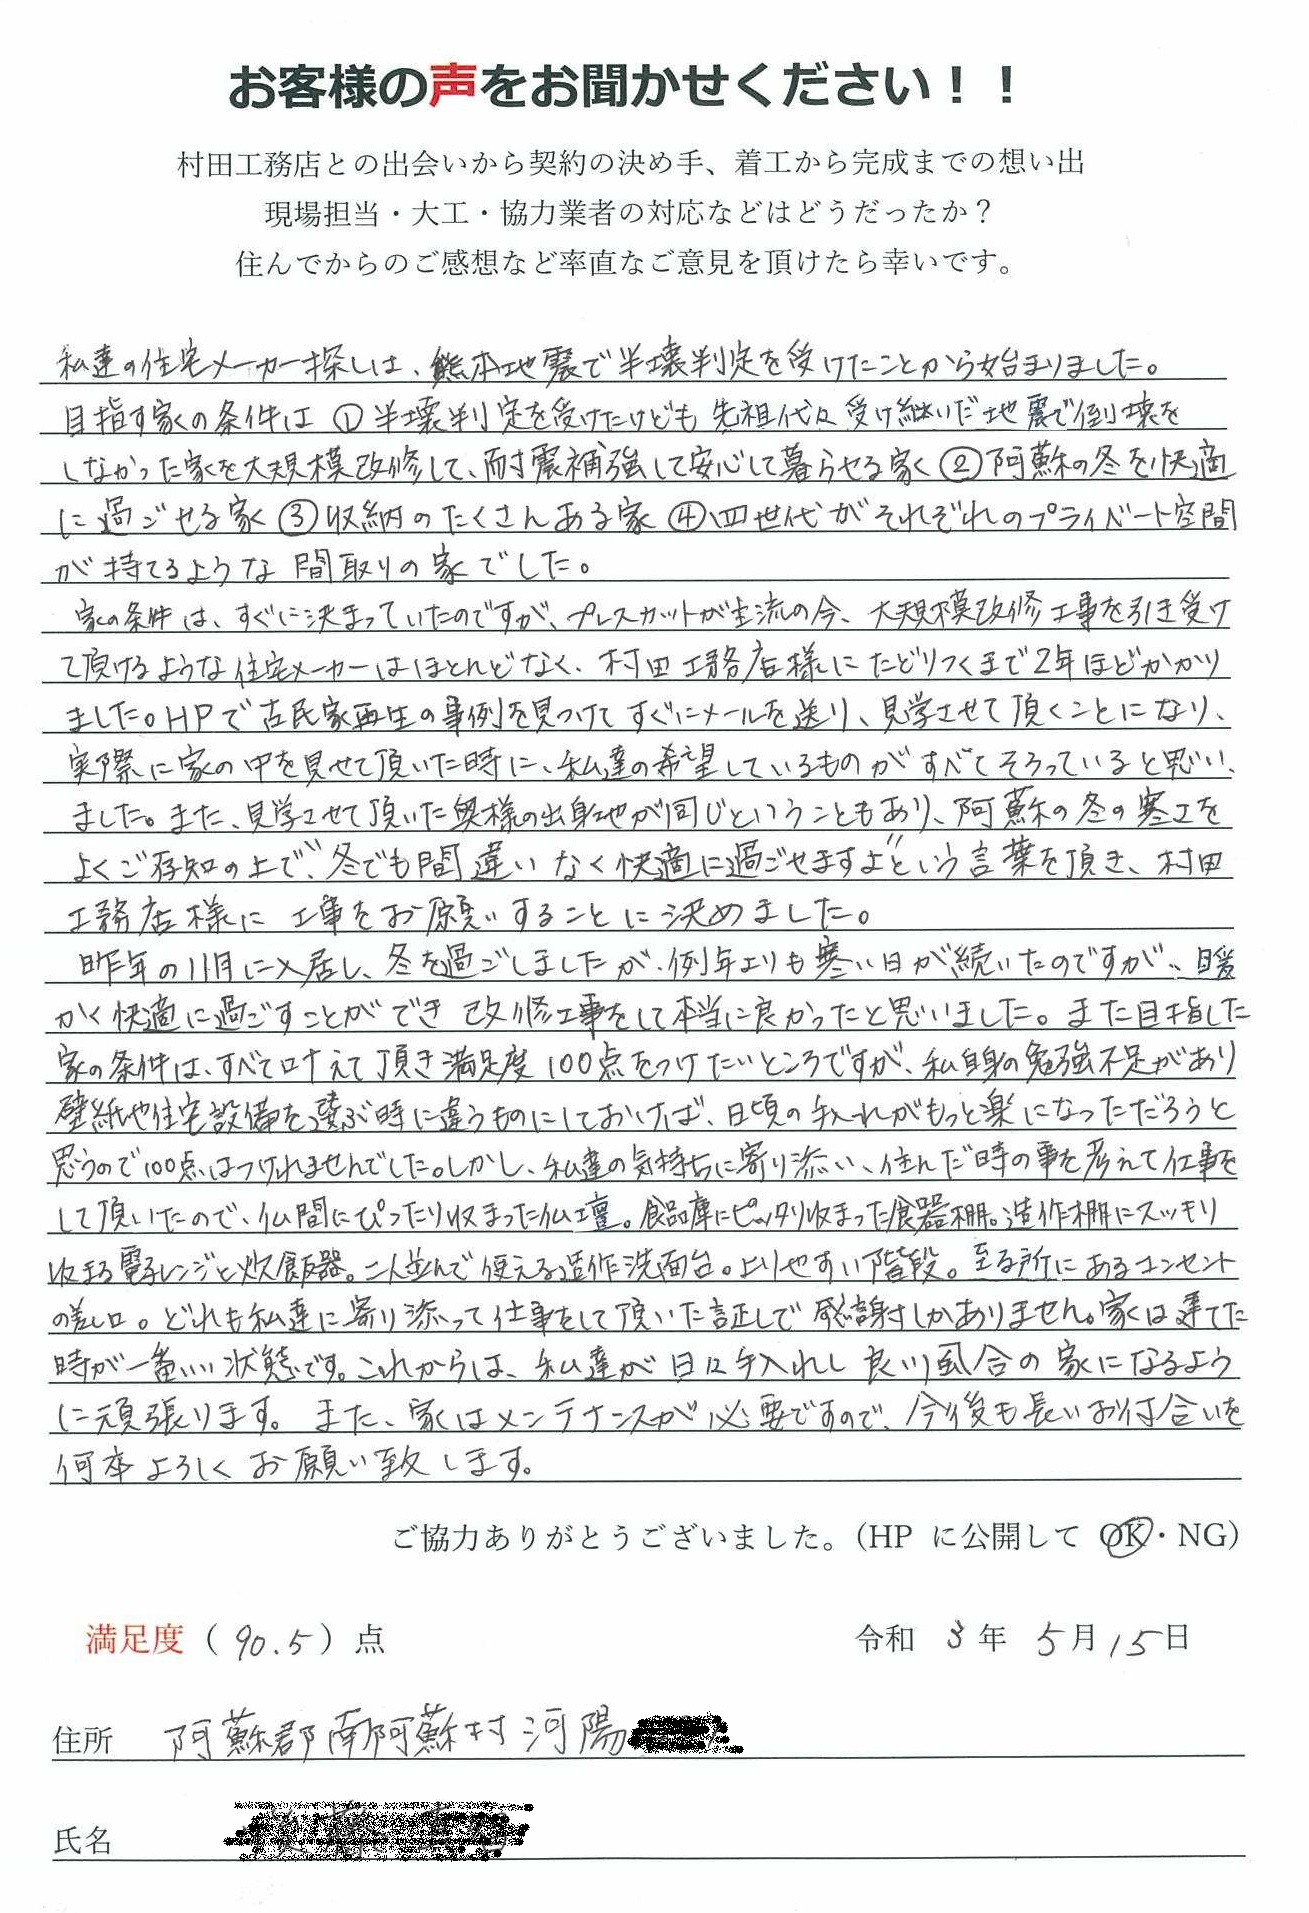 お客様の声をお聞かせください！！
村田工務店との出会いから契約の決め手、着工から完成までの想い出
現場担当・大工・協力業者の対応などはどうだったか？
住んでからのご感想など率直なご意見を頂けたら幸いです。
私達の住宅メーカー探しは、熊本地震で半壊判定を受けたことから始まりました。
目指す家の条件は ①半壊判定を受けたけども 先祖代々 受け継いだ地震で倒壊を
しなかった家を大規模改修して、耐震補強して安心して暮らせる家 ②阿蘇の冬を快適
に過ごせる家 ③収納のたくさんある家 ④四世代がそれぞれのプライベート空間
が持てるような 間取りの家でした。
家の条件は、すぐに決まっていたのですが、プレスカットが主流の今、大規模改修工事を引き受け
て頂けるような住宅メーカーはほとんどなく、村田工務店様にたどりつくまで2年ほどかかり
ました。HPで古民家再生の事例を見つけて すぐにメールを送り、見学させて頂くことになり、
実際に家の中を見せて頂いた時に、私達の希望しているものがすべてそろっていると思い、
ました。また、見学させて頂いた奥様の出身地が同じということもあり、阿蘇の冬の寒さを
よくご存知の上で、“冬でも間違いなく快適に過ごせますよ”という言葉を頂き、村田
工務店様に 工事をお願いすることに決めました。
昨年の11月に入居し、冬を過ごしましたが、例年よりも寒い日が続いたのですが、暖
かく快適に過ごすことができ 改修工事をして本当に良かったと思いました。また目指した
家の条件は、すべて叶えて頂き満足度100点をつけたいところですが、私自身の勉強不足があり
壁紙や住宅設備を選ぶ時に違うものにしておけば、日頃の手入れがもっと楽になっただろうと
思うので100点はつけれませんでした。しかし、私達の気持ちに寄り添い、住んだ時の事を考えて仕事を
して頂いたので、仏間にぴったり収まった仏壇。食品庫にピッタリ収まった食器棚。造作棚にスッキリ
収まる電子レンジと炊飯器。二人並んで使える造作洗面台。上りやすい階段。至る所にあるコンセント
の差し口。どれも私達に寄り添って仕事をして頂いた証しで感謝しかありません。家は建てた
時が一番いい状態です。これからは、私達が日々手入れし良い風合の家になるよう
に頑張ります。また、家はメンテナンスが必要ですので、今後も長いお付合いを
何卒よろしくお願い致します。
ご協力ありがとうございました。（HP に公開して OK・NG）
満足度（90.5）点
令和 3年 5月15日
住所 阿蘇郡南阿蘇村河陽
氏名